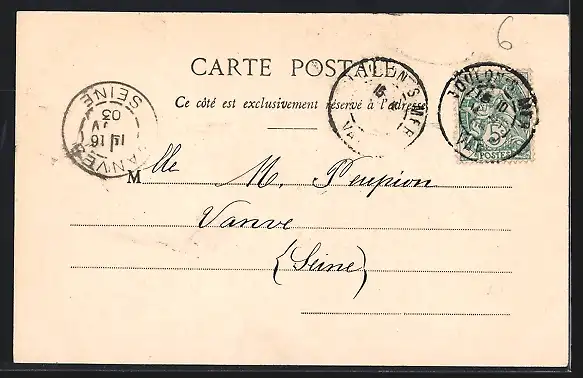 6
CARTE POSTALE
Ce côté est exclusivement réservé à l'adresse
TOULON S MER
VAR
TOULON S MER
VAR
5
POSTES
VANVES
SEINE
03
Mlle M. Peupion
Vanve
(Seine)